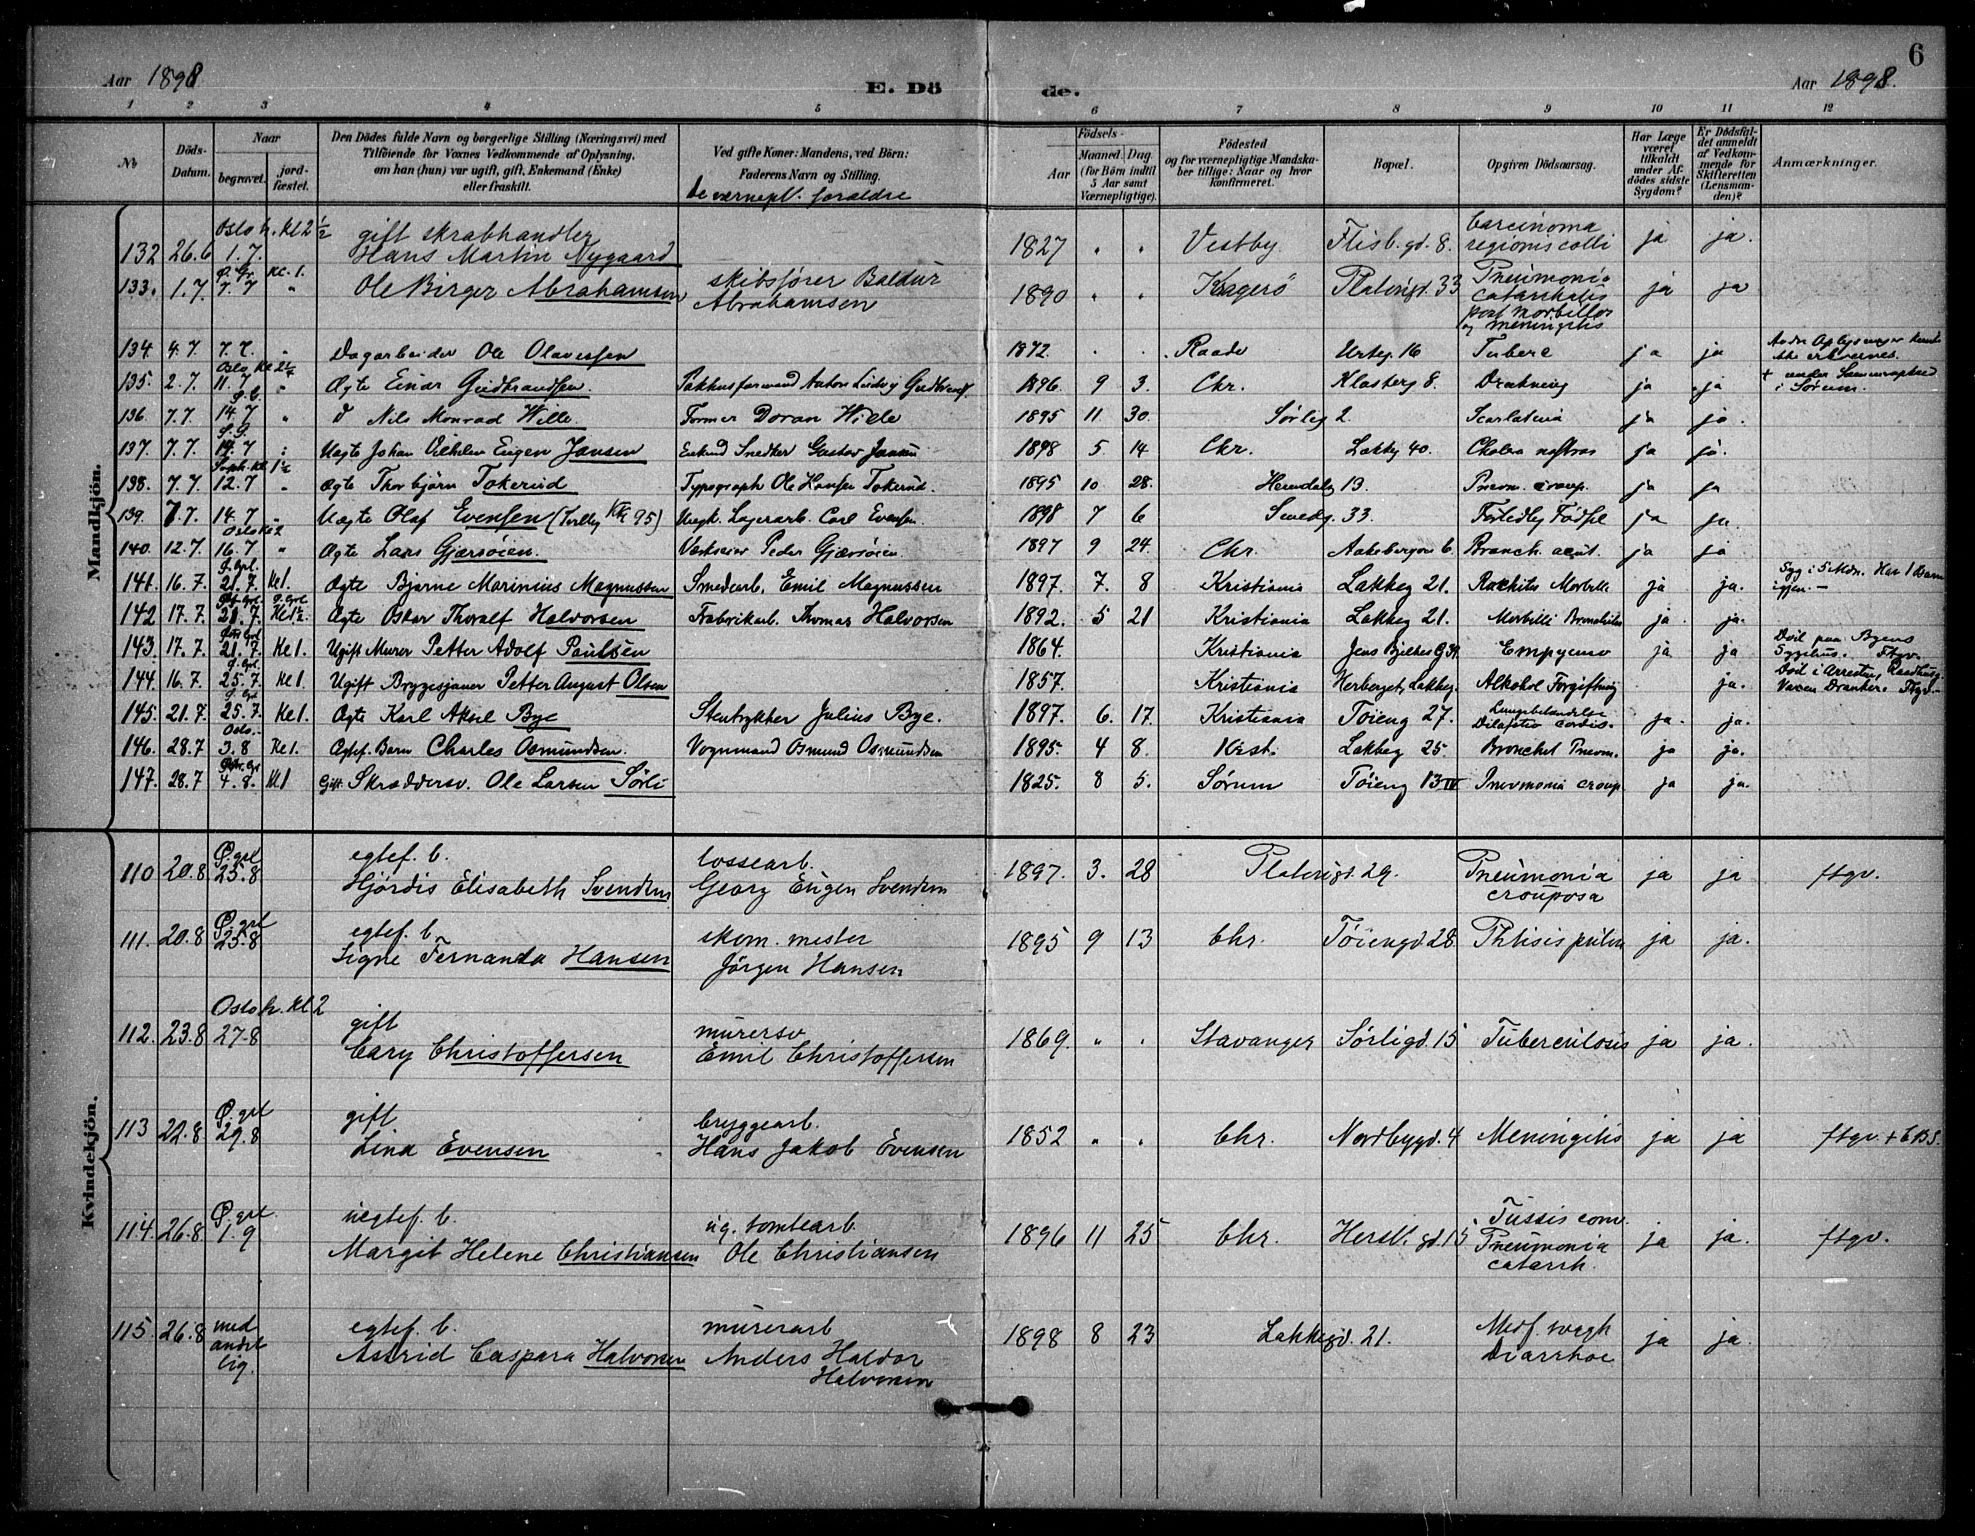 6
Aar 1898
E. Dö
de.
Aar 1898.
1 2 3 4 5 6 7 8 9 10 11 12
No
Döds-Datum.
Naar
begravet.
jord-fæstet.
Den Dödes fulde Navn og borgerlige Stilling (Næringsvei) med
Tilföiende for Voxnes Vedkommende af Oplysning,
om han (hun) var ugift, gift, Enkemand (Enke)
eller fraskilt.
Ved gifte Koner: Mandens, ved Börn:
Faderens Navn og Stilling.
De værnepl. forældre
Födsels-
Aar
Maaned. Dag
(for Börn indtil
5 Aar samt
Værnepligtige).
Födested
og for værnepligtige Mandska-
ber tillige: Naar og hvor
konfirmeret.
Bopæl.
Opgiven Dödsaarsag.
Har Læge
været
tilkaldt
under Af-
dödes sidste
Sygdom?
Er Dödsfal-
det anmeldt
af Vedkom-
mende for
Skifteretten
(Lensman-
den)?
Anmærkninger.
Mandkjön.
132 26.6 Oslo h. Kl 2 1/2 1.7. gift skrabhandler Hans Martin Nygaard 1827 " " Vestby Flisb. gd. 8. Carcinoma regionis colli ja ja.
133. 1.7. Ø. Gr. 7.7 Kl. 1. " Ole Birger Abrahamsen skibsfører Baldur Abrahamsen 1890 " " Kragerö Platousgd. 33 Pneumonia catarrhalis post morbillos og meningitis ja ja
134. 4.7. 7.7. " Dagarbeider Ole Olavessen 1872. . . Raade Urteg. 16 Tuberc ja ja Andre Oplysninger kunde ikke erhverves.
135. 2.7. 11.7 " Ægte Einar Gudbrandsen. Pakhusformand Anton Ludvig Gudbrands. 1896. 9 3. Chr. Klosterg 8. Drukning ja ja + under Sommerophold i Sørum.
136. 7.7. 14.7 " d Nils Monrad Wille. Former Doran Wille 1895 11. 30. Sørlig 2. Scarlatina ja ja.
137. 7.7. 14.7 Uægte Johan Vilhelm Eugen Jansen Enkmd Snedker Gustav Jansen 1898 5 14 Chr. Lakkeg 40. Cholera nostras ja ja.
138. 7.7. 12.7 " Ægte Thorbjørn Tokerud Typograph Ole Hansen Tokerud. 1895 10. 28. Herudalsg 13. Pneum. croup. ja ja
139. 7.7. 14.7 " Uægte Olaf Evensen Ungk. Lagerarb. Carl Evensen. 1898 7 6 Smedg. 33. Fortidlig Födsel ja ja.
140. 12.7. Oslo Kl 2 16.7 " Ægte Lars Gjærsøien. Værkseier Peder Gjærsøien 1897 9 24. Chr. Aakebergvn 6. Bronch. acut. ja ja
141. 16.7. 21.7. Kl 1. Ægte Bjarne Marinius Magnussen Smedearb. Emil Magnussen 1897. 7. 8 Kristiania Lakkeg 21. Rachitis Morbilli ja ja. Syg i 5 Mdn. Har 1 Barn igjen.—
142 17.7. 21.7. Ægte Oskar Thoralf Halvorsen Fabrikarb. Thomas Halvorsen 1892. 5 21 Kristiania Lakkeg 21. Morbilli Bronchitis ja ja.
143. 17.7. 21.7. Kl 1. Ugift Murer Petter Adolf Paulsen 1864. Kristiania Jens Bjelkes G. Empyem ja ja Død paa Byens Sygehus. Ftgv.
144. 16.7. 25.7. Kl 1. Ugift Bryggesjauer Petter August Olsen 1857. Kristiania Herberget, Lakkeg. Alkohol Forgiftning ja. Død i Arresten, Raadhusg. Voxen Dranker. Ftgv.
145. 21.7. 25.7. Kl 1. Ægte Karl Aksel Bye Stentrykker Julius Bye. 1897. 6. 17. Kristiania Tøieng 27. Lungebetændelse Dilatatio cordis. ja. ja.
146. 28.7 Oslo. 3.8 Kl 1. Ægtef. Barn Charles Osmundsen. Vognmand Osmund Osmundsen 1895. 4 8. Krist. Lakkeg 25. Bronchit Pneum. ja ja.
147. 28.7 4.8. Kl 1 Gift Skræddersv. Ole Larsen Sørli 1825. 8 5. Sørum Tøieng 13 IV Pneumonia croup. ja ja.
Kvindekjön.
110 20.8 Ø. grl 25.8 egtef. b. Hjördis Elisabeth Svendsen lossearb. Georg Eugen Svendsen 1897. 3. 28 Platousgd. 29. Pneumonia crouposa ja ja ftgv.
111. 20.8 Ø. grl 25.8 egtef. b. Signe Fernanda Hansen skom. mester Jörgen Hansen 1895 9 13 Chr. Töiengd. 28 Phtisis pulm ja ja.
112. 23.8 Oslo h. Kl 2 27.8 gift Cary Christoffersen murersv Emil Christoffersen 1869. " . Stavanger Sörligd. 15 Tuberculosis ja ja.
113 22.8 Ø. grl 29.8 gift. Lina Evensen bryggearb. Hans Jakob Evensen 1852 " " Chr. Nordbygd. 4 Meningitis ja ja ftgv. + 6 BS.
114. 26.8 Ø. grl. 1.9 uegtef. b. Margit Helene Christiansen ug. tomtearb Ole Christiansen 1896 11 25 Chr. Hersl. gd. 15 Tussis conv. Pneumonia catarrh. ja ja. ftgv.
115. 26.8 med andet lig. egtef. b. Astrid Caspara Halvorsen murerarb Anders Haldor Halvorsen 1898 8 23 Lakkegd. 21. Medf. svagh Diarrhoe ja ja.